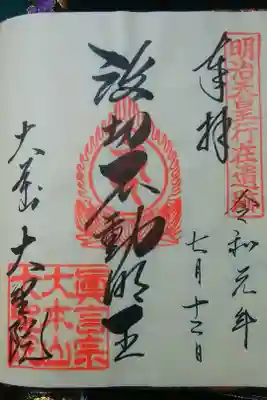 明治天皇行在遺
奉拝
令和元年
七月十二日
波切不動明王
大本山 大聖院
眞言宗
大本山
大聖院